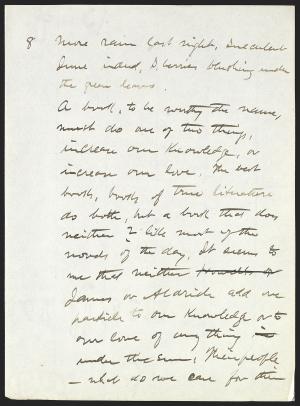 8 More rain last night, Succulent
June indeed, S.berries blushing under
the green leaves.
A book, to be worthy the name,
must do one of two things,
increase our knowledge, or
increase our love. The best
books, books of true literature
do both, but a book that does
neither? – like most of the
novels of the day. It seems to
me that neither Howells or
James or Aldrich add one
particle to our knowledge or to
our love of any thing in
under the sun, Their people
– what do we care for them